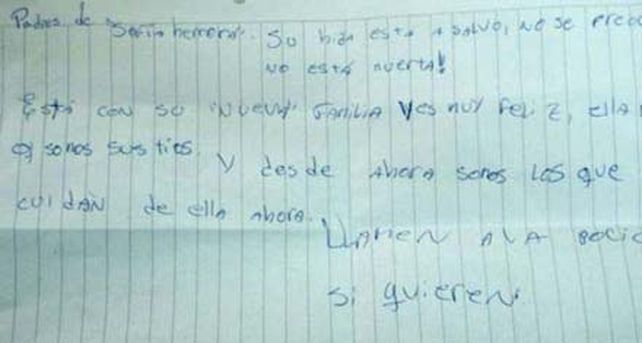 Padres de . Su hija esta a salvo, no se
no está muerta!
Está con su nueva familia y es muy feliz, ella
somos sus tios. y desde ahora somos los que
cuidan de ella ahora.
Llamen a la
si quieren.